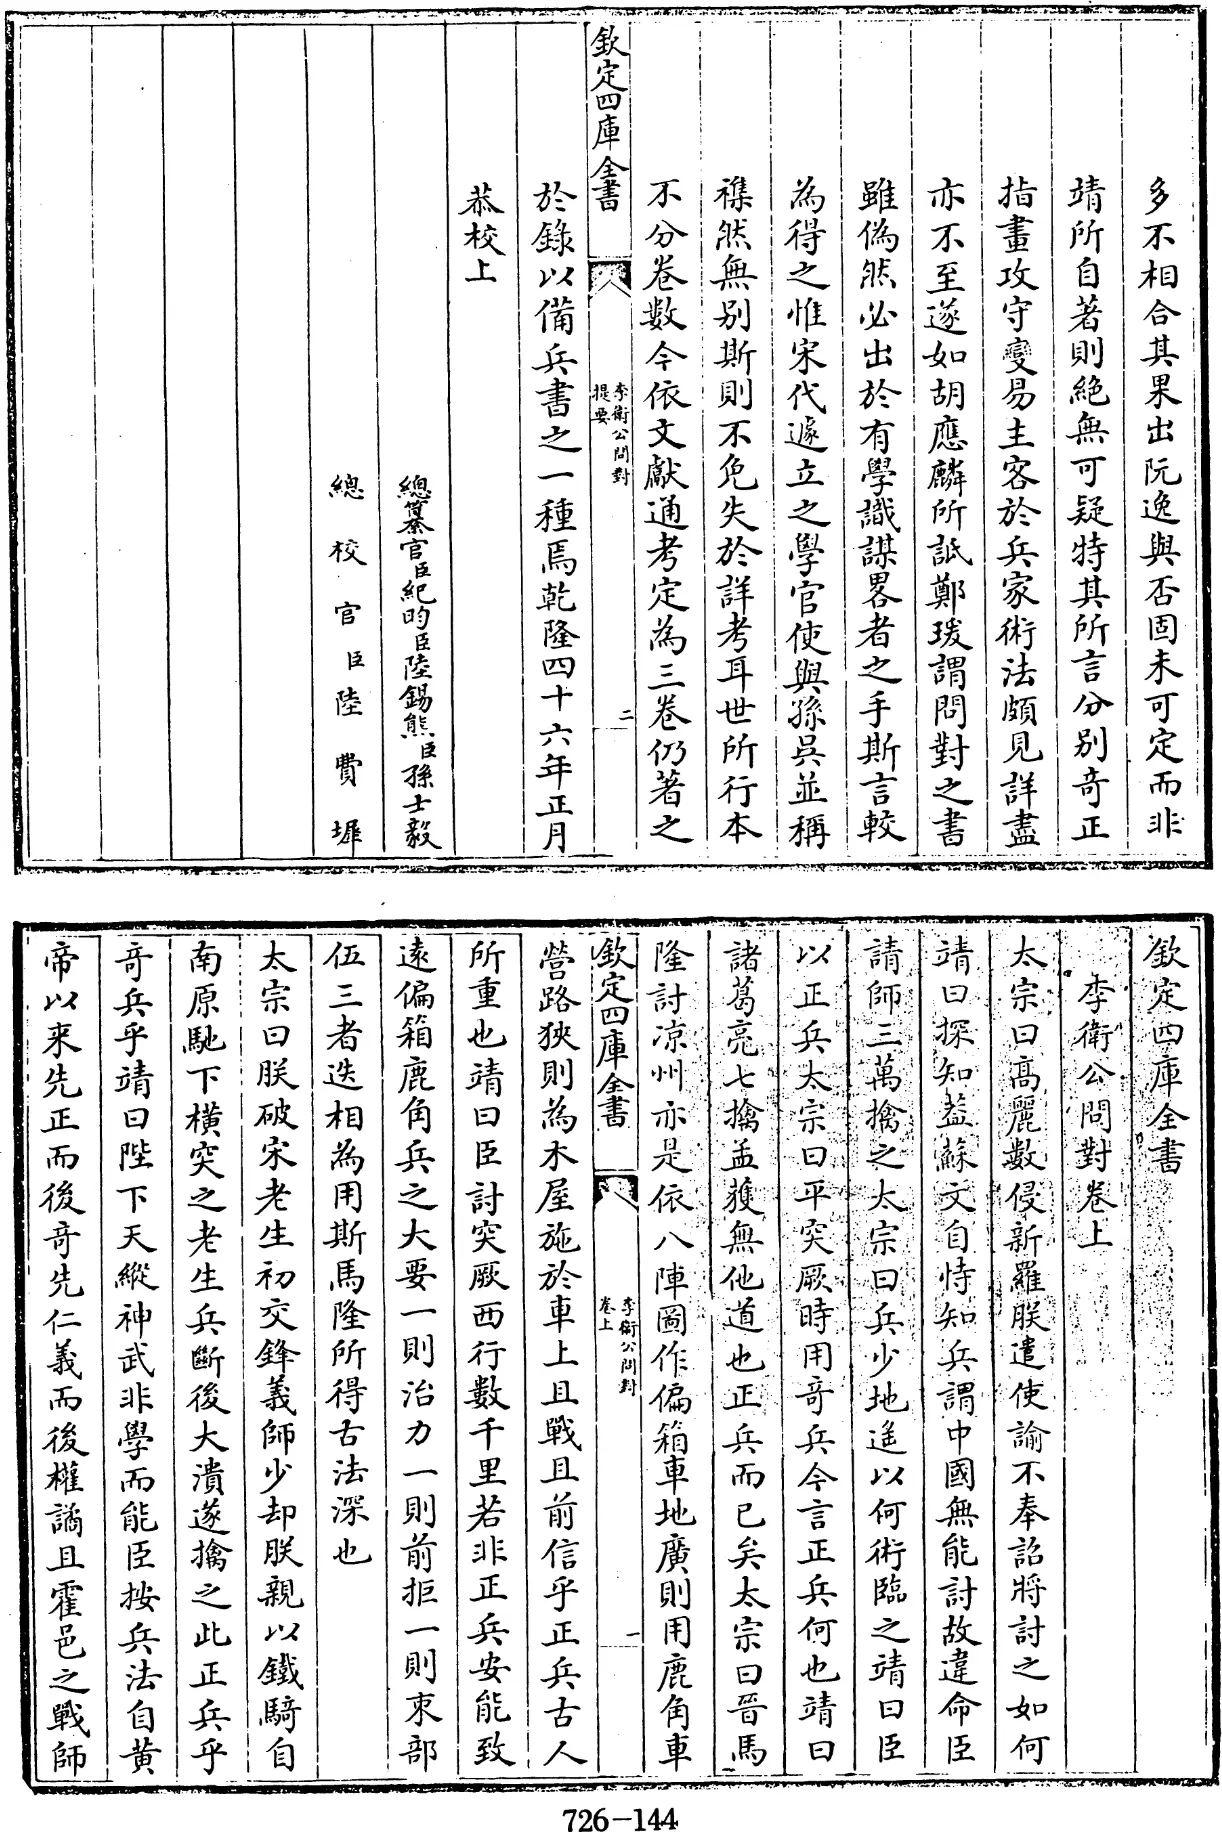 多不相合其果出阮逸與否固未可定而非
靖所自著則絶無可疑特其所言分別奇正
指畫攻守變易主客於兵家術法頗見詳盡
亦不至遂如胡應麟所詆鄭瑗謂問對之書
雖偽然必出於有學識謀畧者之手斯言較
為得之惟宋代遽立之學官使與孫吳並稱
襍然無別斯則不免失於詳考耳世所行本
不分卷數今依文獻通考定為三卷仍著之
欽定四庫全書
李衛公問對
提要
二
於錄以備兵書之一種焉乾隆四十六年正月
恭校上
總纂官臣紀昀臣陸錫熊臣孫士毅
總校官臣陸費墀
欽定四庫全書
李衛公問對卷上
太宗曰髙麗數侵新羅朕遣使諭不奉詔將討之如何
靖曰探知葢蘇文自恃知兵謂中國無能討故違命臣
請師三萬擒之太宗曰兵少地遙以何術臨之靖曰臣
以正兵太宗曰平突厥時用竒兵今言正兵何也靖曰
諸葛亮七擒孟獲無他道也正兵而已矣太宗曰晉馬
隆討凉州亦是依八陣圖作偏箱車地廣則用鹿角車
欽定四庫全書
李衛公問對
卷上
一
營路狹則為木屋施於車上且戰且前信乎正兵古人
所重也靖曰臣討突厥西行數千里若非正兵安能致
遠偏箱鹿角兵之大要一則治力一則前拒一則束部
伍三者迭相為用斯馬隆所得古法深也
太宗曰朕破宋老生初交鋒義師少却朕親以鐵騎自
南原馳下橫突之老生兵斷後大潰遂擒之此正兵乎
竒兵乎靖曰陛下天縱神武非學而能臣按兵法自黄
帝以来先正而後竒先仁義而後權譎且霍邑之戰師
726-144